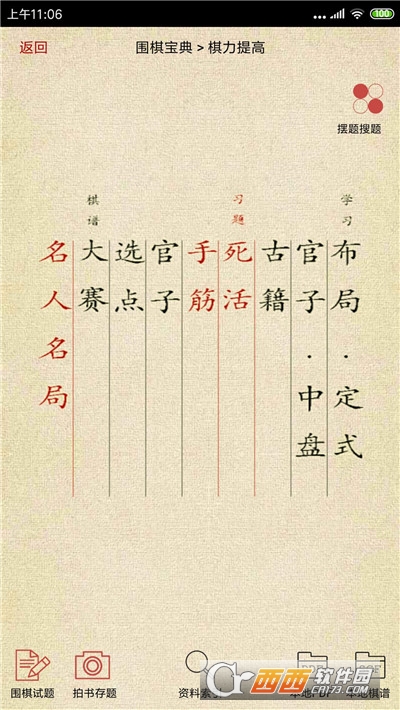 上午11:06
100
返回
围棋宝典 > 棋力提高
摆题搜题
学习
布局·定式
官子·中盘
古籍
习题
死活
手筋
官子
选点
棋谱
大赛
名人名局
围棋试题
拍书存题
资料索
本地棋谱
西西软件园
CR173.COM